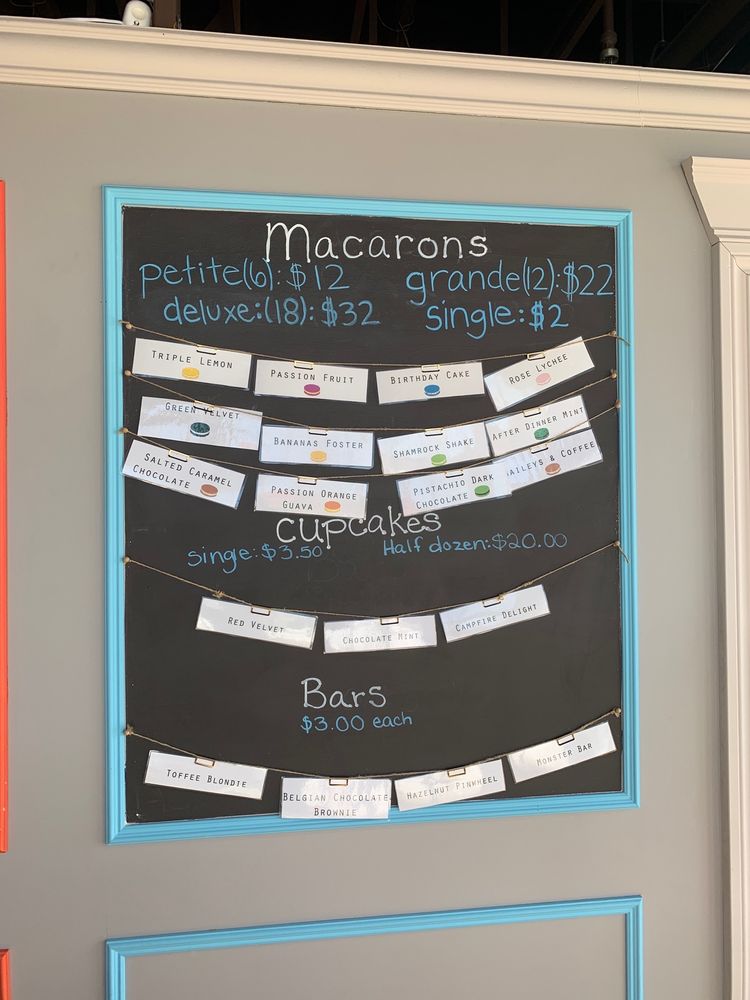 Macarons
petite(6): $12 grande(12):$22
deluxe:(18): $32 single: $2
TRIPLE LEMON
PASSION FRUIT
BIRTHDAY CAKE
ROSE LYCHEE
GREEN VELVET
BANANAS FOSTER
SHAMROCK SHAKE
AFTER DINNER MINT
SALTED CARAMEL
CHOCOLATE
PASSION ORANGE
GUAVA
PISTACHIO DARK
CHOCOLATE
AILEYS & COFFEE
cupcakes
single: $3.50 Half dozen: $20.00
RED VELVET
CHOCOLATE MINT
CAMPFIRE DELIGHT
Bars
$3.00 each
TOFFEE BLONDIE
BELGIAN CHOCOLATE
BROWNIE
HAZELNUT PINWHEEL
MONSTER BAR